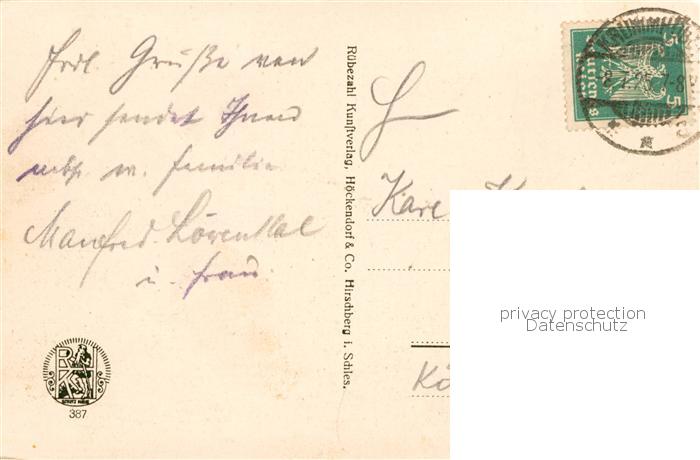 Frdl. Grüße von
hier sendet Ihnen
nebst w. Familie
Manfred Löwenthal
u. Frau.
Rübezahl Kunstverlag, Höckendorf & Co. Hirschberg i. Schles.
387
H
Karl
Kö
5
5
Deutsches Reich
KRUMMH
7-8
privacy protection
Datenschutz